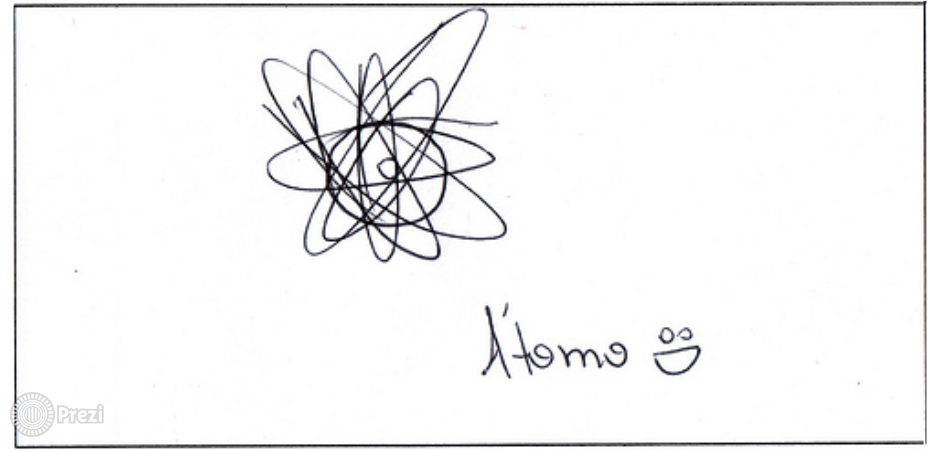 Átomo
Prezi